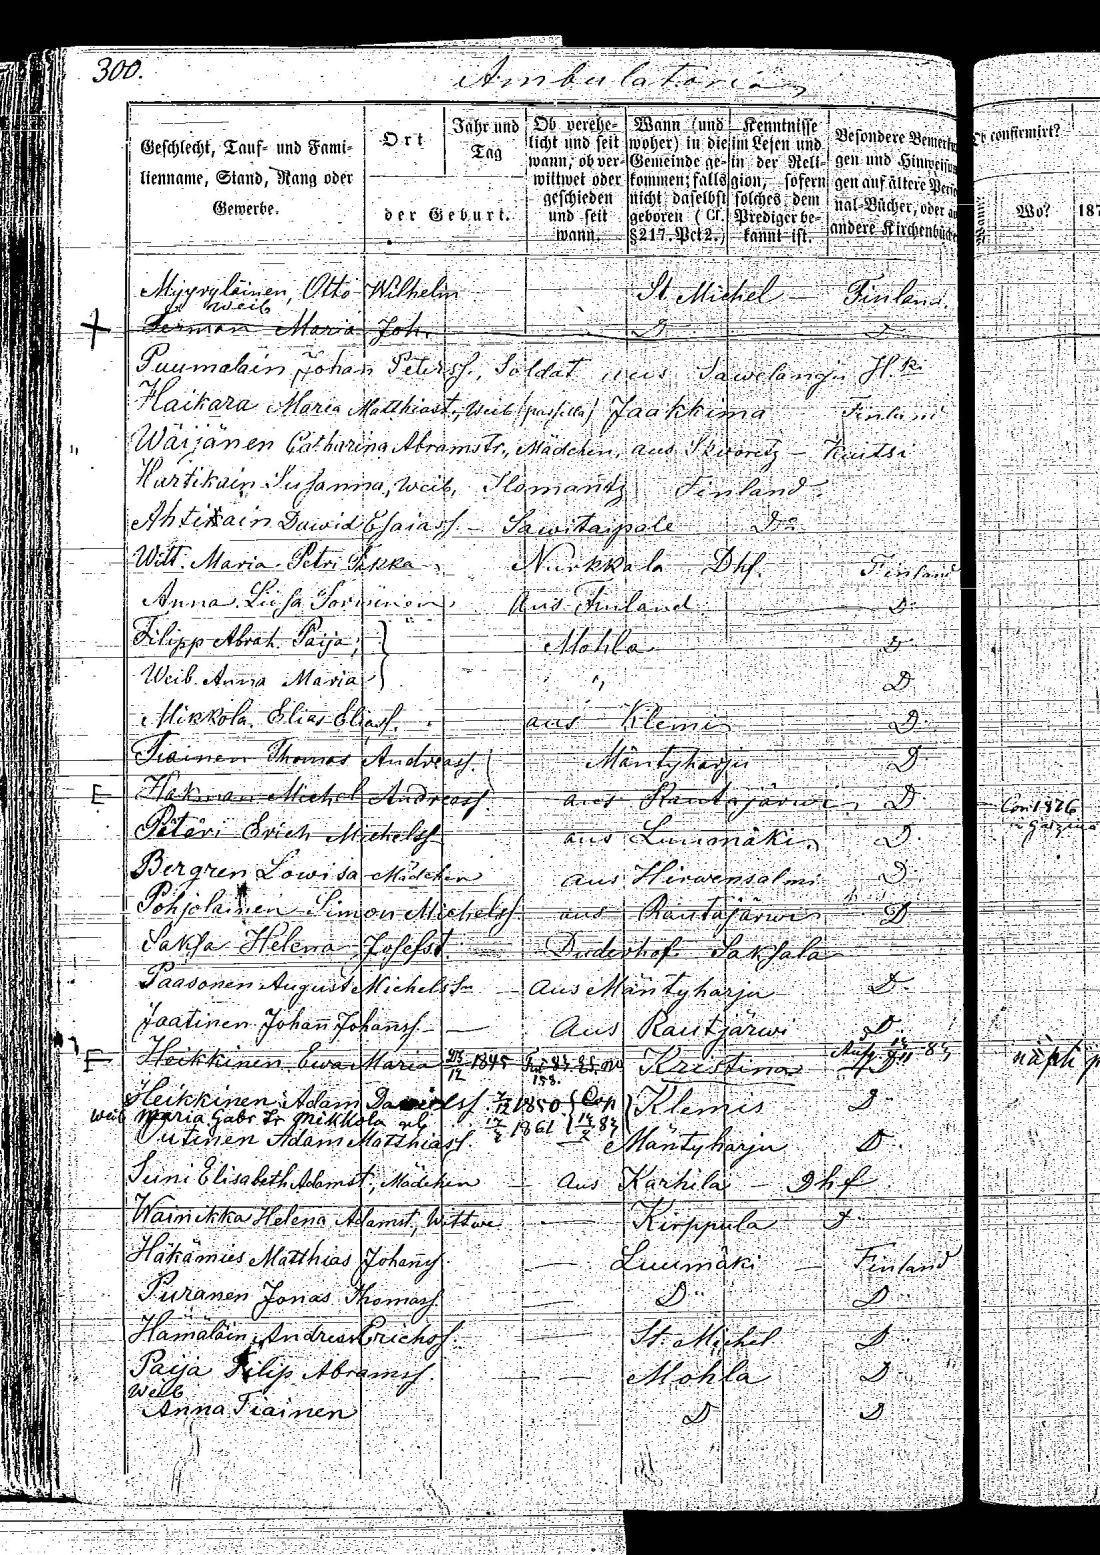 300.
Ambulatoria
Geschlecht, Tauf- und Fami-
lienname, Stand, Rang oder
Gewerbe.
Ort
Jahr und
Tag
der Geburt.
Ob verehe-
licht und seit
wann, ob ver-
wittwet oder
geschieden
und seit
wann.
Wann (und
woher) in die
Gemeinde ge-
kommen; falls
nicht daselbst
geboren (Cf.
§217. Pct 2.)
Kenntnisse
im Lesen und
in der Reli-
gion, sofern
solches dem
Prediger be-
kannt ist.
Besondere Bemerkun
gen und Hinweisun
gen auf ältere Perso
nal-Bücher, oder an
andere Kirchenbüche
confirmirt?
Wann?
Wo?
187
Myyryläinen, Otto Wilhelm St. Michel – Finland
Weib
Maria Joh. D D
Puumalain Johan Peterss., Soldat aus
Haikara Maria Matthiast., Weib Jaakkima Finland
Wäijänen Catharina Abramstr., Mädchen, aus Skworitz –
Hartikain Susanna, Weib, Ilomantz Finland.
Ahtikain Dawid Esaiass. – Sawitaipale Do
Witt. Maria Petri Pekka Nurkkala Dhf. Finland
Anna Liisa aus Finland D
Filipp Abrah. Paija, Mohla D
Weib Anna Maria " D
Mikkola Elias Eliass. aus Klemis D
Tiainen Thomas Andreass. Mäntyharju D
Hakman Michel Andreass. aus Rautajärwi D
Pätäri Erich Michelss aus Luumäki D
Bergren Lowisa Mädchen aus Hirwensalmi D
Pohjolainen Simon Michelss aus Rautajärwi D
Saksa Helena Josefst. Duderhof Saksala
Paasonen August Michelss – Aus Mäntyharju D
Jaatinen Johan Johanss. – Aus Rautjärwi D
Heikkinen, Ewa Maria 1845 Kristina D
Heikkinen Adam 1850 Cop Klemis D
Weib Maria Gabr. Tr Mikkola 1861
Putinen Adam Matthiass. Mäntyharju D
Suni Elisabeth Adamst., Mädchen – Aus Karhila – Dhf
Wainikka Helena Adamst., Wittwe – Kirppula D
Häkämies Matthias Johanss – Luumäki – Finland
Puranen Jonas Thomass. – D D
Hämäläin Andreas Erichss. – St. Michel D
Paija Filip Abramss. – Mohla D
Weib
Anna Tiainen D D